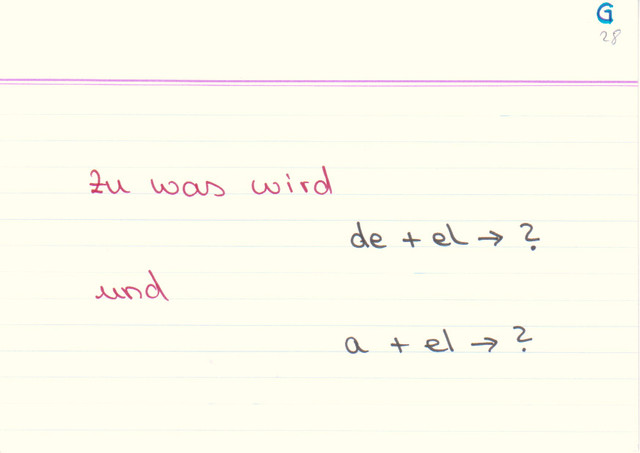 G
28
Zu was wird
de + el → ?
und
a + el → ?